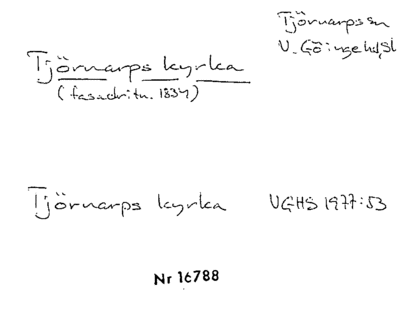 Tjörnarps sn
V. Göinge hd, Sk
Tjörnarps kyrka
(fasadritn. 1834)
Tjörnarps kyrka VGHS 1977:53
Nr 16788